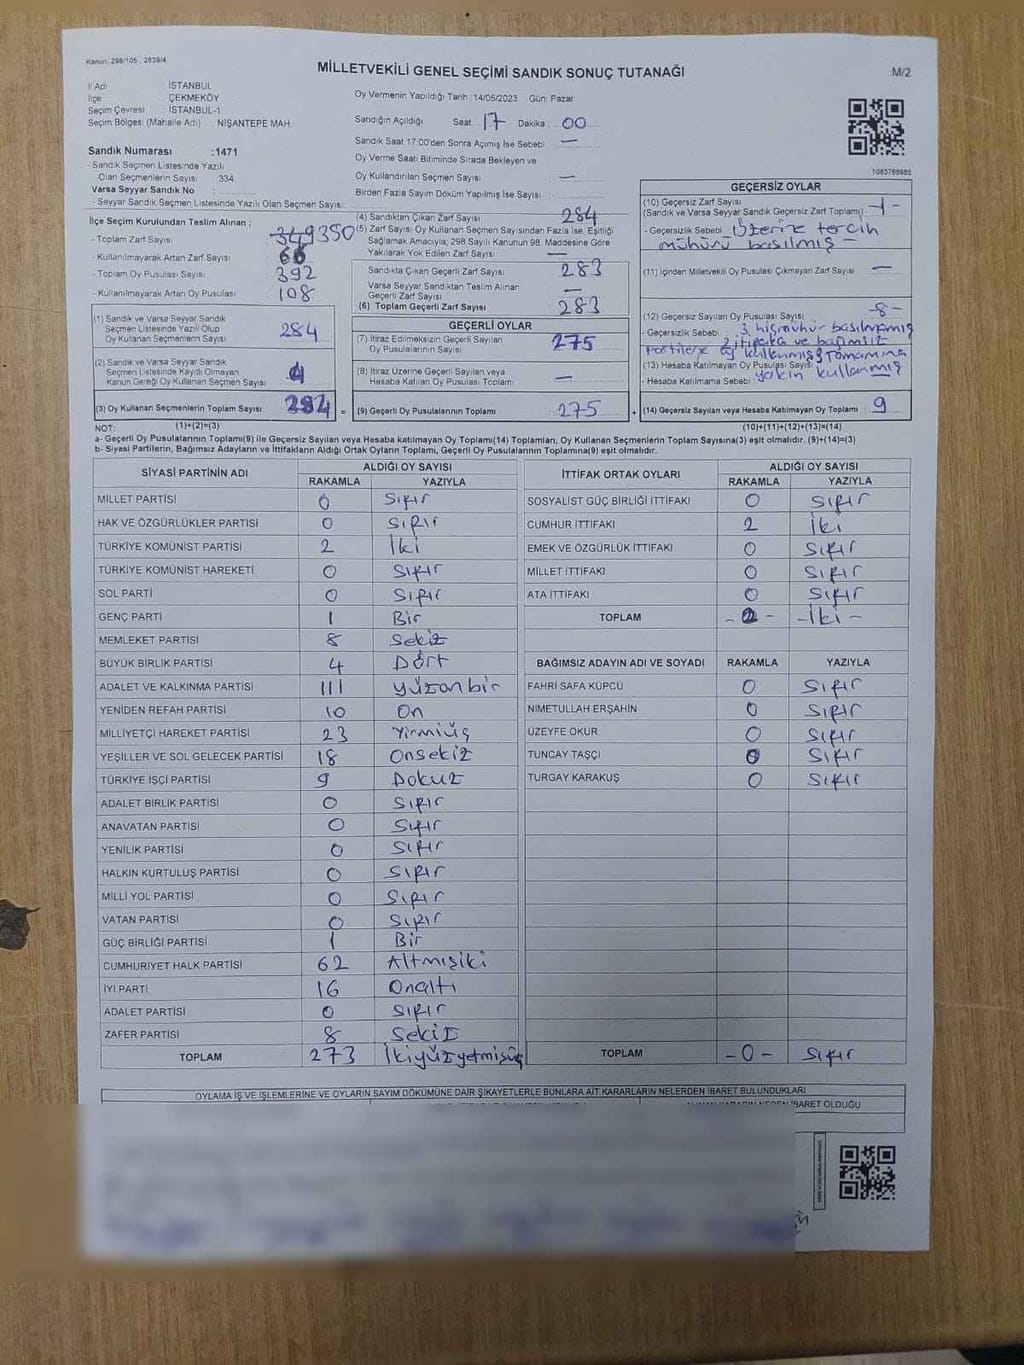 Kanun: 298/105 , 2839/4
MİLLETVEKİLİ GENEL SEÇİMİ SANDIK SONUÇ TUTANAĞI
M/2
İl Adı : İSTANBUL
İlçe : ÇEKMEKÖY
Seçim Çevresi : İSTANBUL-1
Seçim Bölgesi (Mahalle Adı) : NİŞANTEPE MAH.
Oy Vermenin Yapıldığı Tarih :14/05/2023 Gün: Pazar
Sandığın Açıldığı Saat: 17 Dakika: 00
Sandık Saat 17:00'den Sonra Açımış İse Sebebi —
Oy Verme Saati Bitiminde Sırada Bekleyen ve
Oy Kullandırılan Seçmen Sayısı : —
Birden Fazla Sayım Döküm Yapılmış İse Sayısı :
1083768985
Sandık Numarası :1471
- Sandık Seçmen Listesinde Yazılı
Olan Seçmenlerin Sayısı : 334
Varsa Seyyar Sandık No :
- Seyyar Sandık Seçmen Listesinde Yazılı Olan Seçmen Sayısı:
İlçe Seçim Kurulundan Teslim Alınan ;
- Toplam Zarf Sayısı : 349 350
- Kullanılmayarak Artan Zarf Sayısı : 66
- Toplam Oy Pusulası Sayısı : 392
- Kullanılmayarak Artan Oy Pusulası : 108
(1) Sandık ve Varsa Seyyar Sandık
Seçmen Listesinde Yazılı Olup
Oy Kullanan Seçmenlerin Sayısı 284
(2) Sandık ve Varsa Seyyar Sandık
Seçmen Listesinde Kayıtlı Olmayan
Kanun Gereği Oy Kullanan Seçmen Sayısı
(3) Oy Kullanan Seçmenlerin Toplam Sayısı 284 =
(1)+(2)=(3)
(4) Sandıktan Çıkan Zarf Sayısı 284
(5) Zarf Sayısı Oy Kullanan Seçmen Sayısından Fazla İse, Eşitliği
Sağlamak Amacıyla; 298 Sayılı Kanunun 98. Maddesine Göre
Yakılarak Yok Edilen Zarf Sayısı —
Sandıkta Çıkan Geçerli Zarf Sayısı 283
Varsa Seyyar Sandıktan Teslim Alınan
Geçerli Zarf Sayısı —
(6) Toplam Geçerli Zarf Sayısı 283
GEÇERLİ OYLAR
(7) İtiraz Edilmeksizin Geçerli Sayılan
Oy Pusulalarının Sayısı 275
(8) İtiraz Üzerine Geçerli Sayılan veya
Hesaba Katılan Oy Pusulası Toplamı —
(9) Geçerli Oy Pusulalarının Toplamı 275 +
GEÇERSİZ OYLAR
(10) Geçersiz Zarf Sayısı
(Sandık ve Varsa Seyyar Sandık Geçersiz Zarf Toplamı) -1-
- Geçersizlik Sebebi : Üzerine tercih
mühürü basılmış —
(11) İçinden Milletvekili Oy Pusulası Çıkmayan Zarf Sayısı —
(12) Geçersiz Sayılan Oy Pusulası Sayısı -8-
- Geçersizlik Sebebi : 3 hiç mühür basılmamış
2 ittifaka ve bağımsız
Partilere oy kullanmış 3 tamamına
(13) Hesaba Katılmayan Oy Sayısı:
- Hesaba Katılmama Sebebi : yakın kullanmış
(14) Geçersiz Sayılan veya Hesaba Katılmayan Oy Toplamı 9
(10)+(11)+(12)+(13)=(14)
NOT:
a- Geçerli Oy Pusulaları Toplamı(9) ile Geçersiz Sayılan veya Hesaba katılmayan Oy Toplamı(14) Toplamları, Oy Kullanan Seçmenlerin Toplam Sayısına(3) eşit olmalıdır. (9)+(14)=(3)
b- Siyasi Partilerin, Bağımsız Adayların ve İttifakların Aldığı Ortak Oyların Toplamı, Geçerli Oy Pusulalarının Toplamına(9) eşit olmalıdır.
SİYASİ PARTİNİN ADI ALDIĞI OY SAYISI
RAKAMLA YAZIYLA
MİLLET PARTİSİ 0 Sıfır
HAK VE ÖZGÜRLÜKLER PARTİSİ 0 Sıfır
TÜRKİYE KOMÜNİST PARTİSİ 2 İki
TÜRKİYE KOMÜNİST HAREKETİ 0 Sıfır
SOL PARTİ 0 Sıfır
GENÇ PARTİ 1 Bir
MEMLEKET PARTİSİ 8 Sekiz
BÜYÜK BİRLİK PARTİSİ 4 Dört
ADALET VE KALKINMA PARTİSİ 111 yüzonbir
YENİDEN REFAH PARTİSİ 10 On
MİLLİYETÇİ HAREKET PARTİSİ 23 Yirmiüç
YEŞİLLER VE SOL GELECEK PARTİSİ 18 Onsekiz
TÜRKİYE İŞÇİ PARTİSİ 9 Dokuz
ADALET BİRLİK PARTİSİ 0 Sıfır
ANAVATAN PARTİSİ 0 Sıfır
YENİLİK PARTİSİ 0 Sıfır
HALKIN KURTULUŞ PARTİSİ 0 Sıfır
MİLLİ YOL PARTİSİ 0 Sıfır
VATAN PARTİSİ 0 Sıfır
GÜÇ BİRLİĞİ PARTİSİ 1 Bir
CUMHURİYET HALK PARTİSİ 62 Altmışiki
İYİ PARTİ 16 Onaltı
ADALET PARTİSİ 0 Sıfır
ZAFER PARTİSİ 8 Sekiz
TOPLAM 273 İkiyüzyetmişüç
İTTİFAK ORTAK OYLARI ALDIĞI OY SAYISI
RAKAMLA YAZIYLA
SOSYALİST GÜÇ BİRLİĞİ İTTİFAKI 0 Sıfır
CUMHUR İTTİFAKI 2 İki
EMEK VE ÖZGÜRLÜK İTTİFAKI 0 Sıfır
MİLLET İTTİFAKI 0 Sıfır
ATA İTTİFAKI 0 Sıfır
TOPLAM -2- -İki-
BAĞIMSIZ ADAYIN ADI VE SOYADI RAKAMLA YAZIYLA
FAHRİ SAFA KÜPCÜ 0 Sıfır
NİMETULLAH ERŞAHİN 0 Sıfır
ÜZEYFE OKUR 0 Sıfır
TUNCAY TAŞÇI 0 Sıfır
TURGAY KARAKUŞ 0 Sıfır
TOPLAM -0- Sıfır
OYLAMA İŞ VE İŞLEMLERİNE VE OYLARIN SAYIM DÖKÜMÜNE DAİR ŞİKAYETLERLE BUNLARA AİT KARARLARIN NELERDEN İBARET BULUNDUKLARI
İBARET OLDUĞU